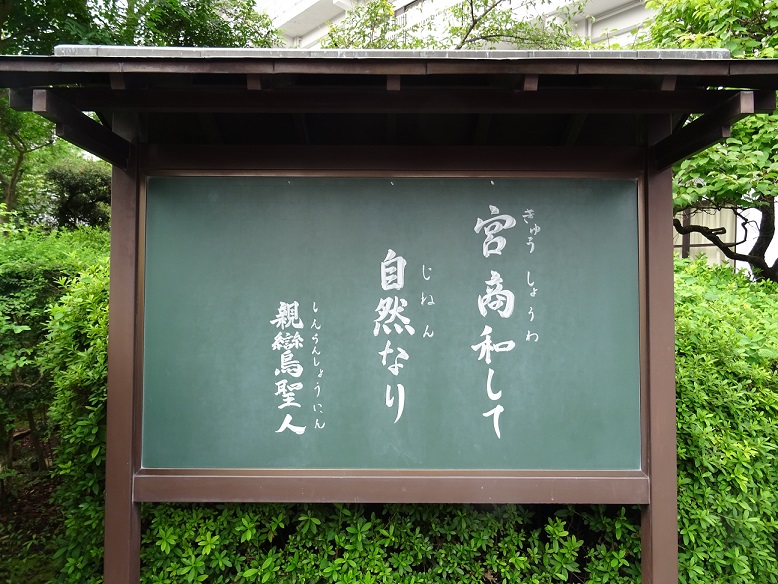 きゅうしょうわ
宮商和して
じねん
自然なり
しんらんしょうにん
親鸞聖人